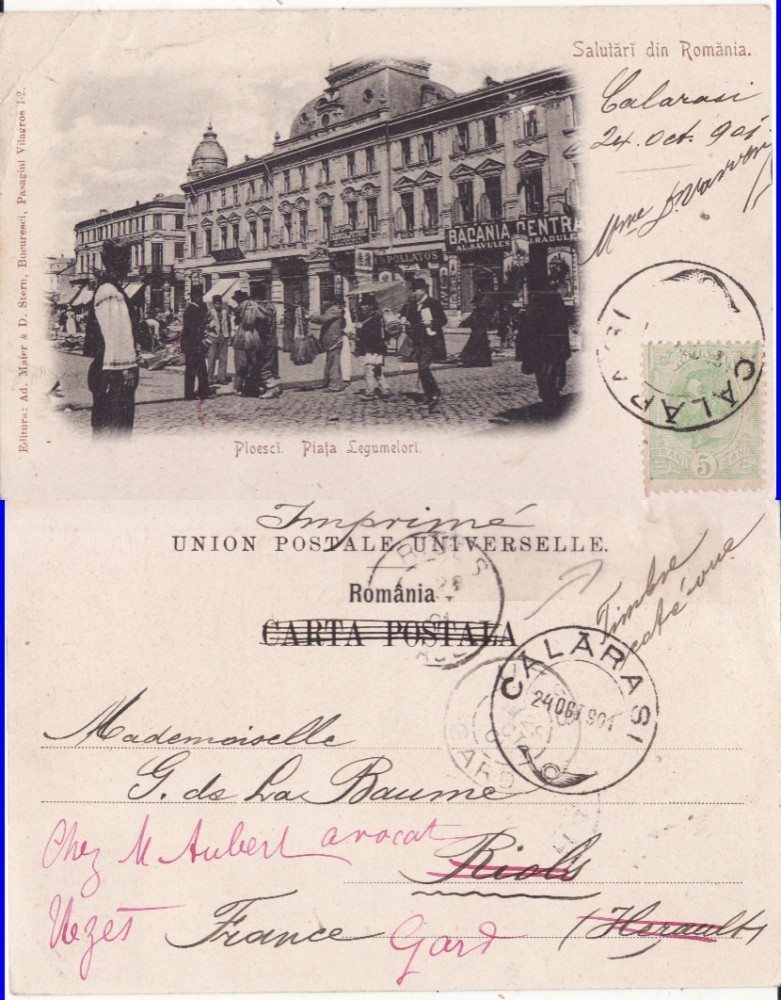 Salutări din România.
Calarasi
24. Oct. 901
Mme
Editura: Ad. Maier & D. Stern, Bucuresci, Pasagiul Vilagros 1-2.
BACANIA CENTRA
APOLLATOS
CALARASI
BANI 5 BANI
Ploescĭ. Piața Legumelorĭ.
Imprimé
UNION POSTALE UNIVERSELLE.
România
CARTA POSTALA
Timbre
coté vue
CALARASI
24 OCT 901
GARD
Mademoiselle
G. de La Baume
Chez M Aubert avocat
Riols
Uzès France Gard (Herault)